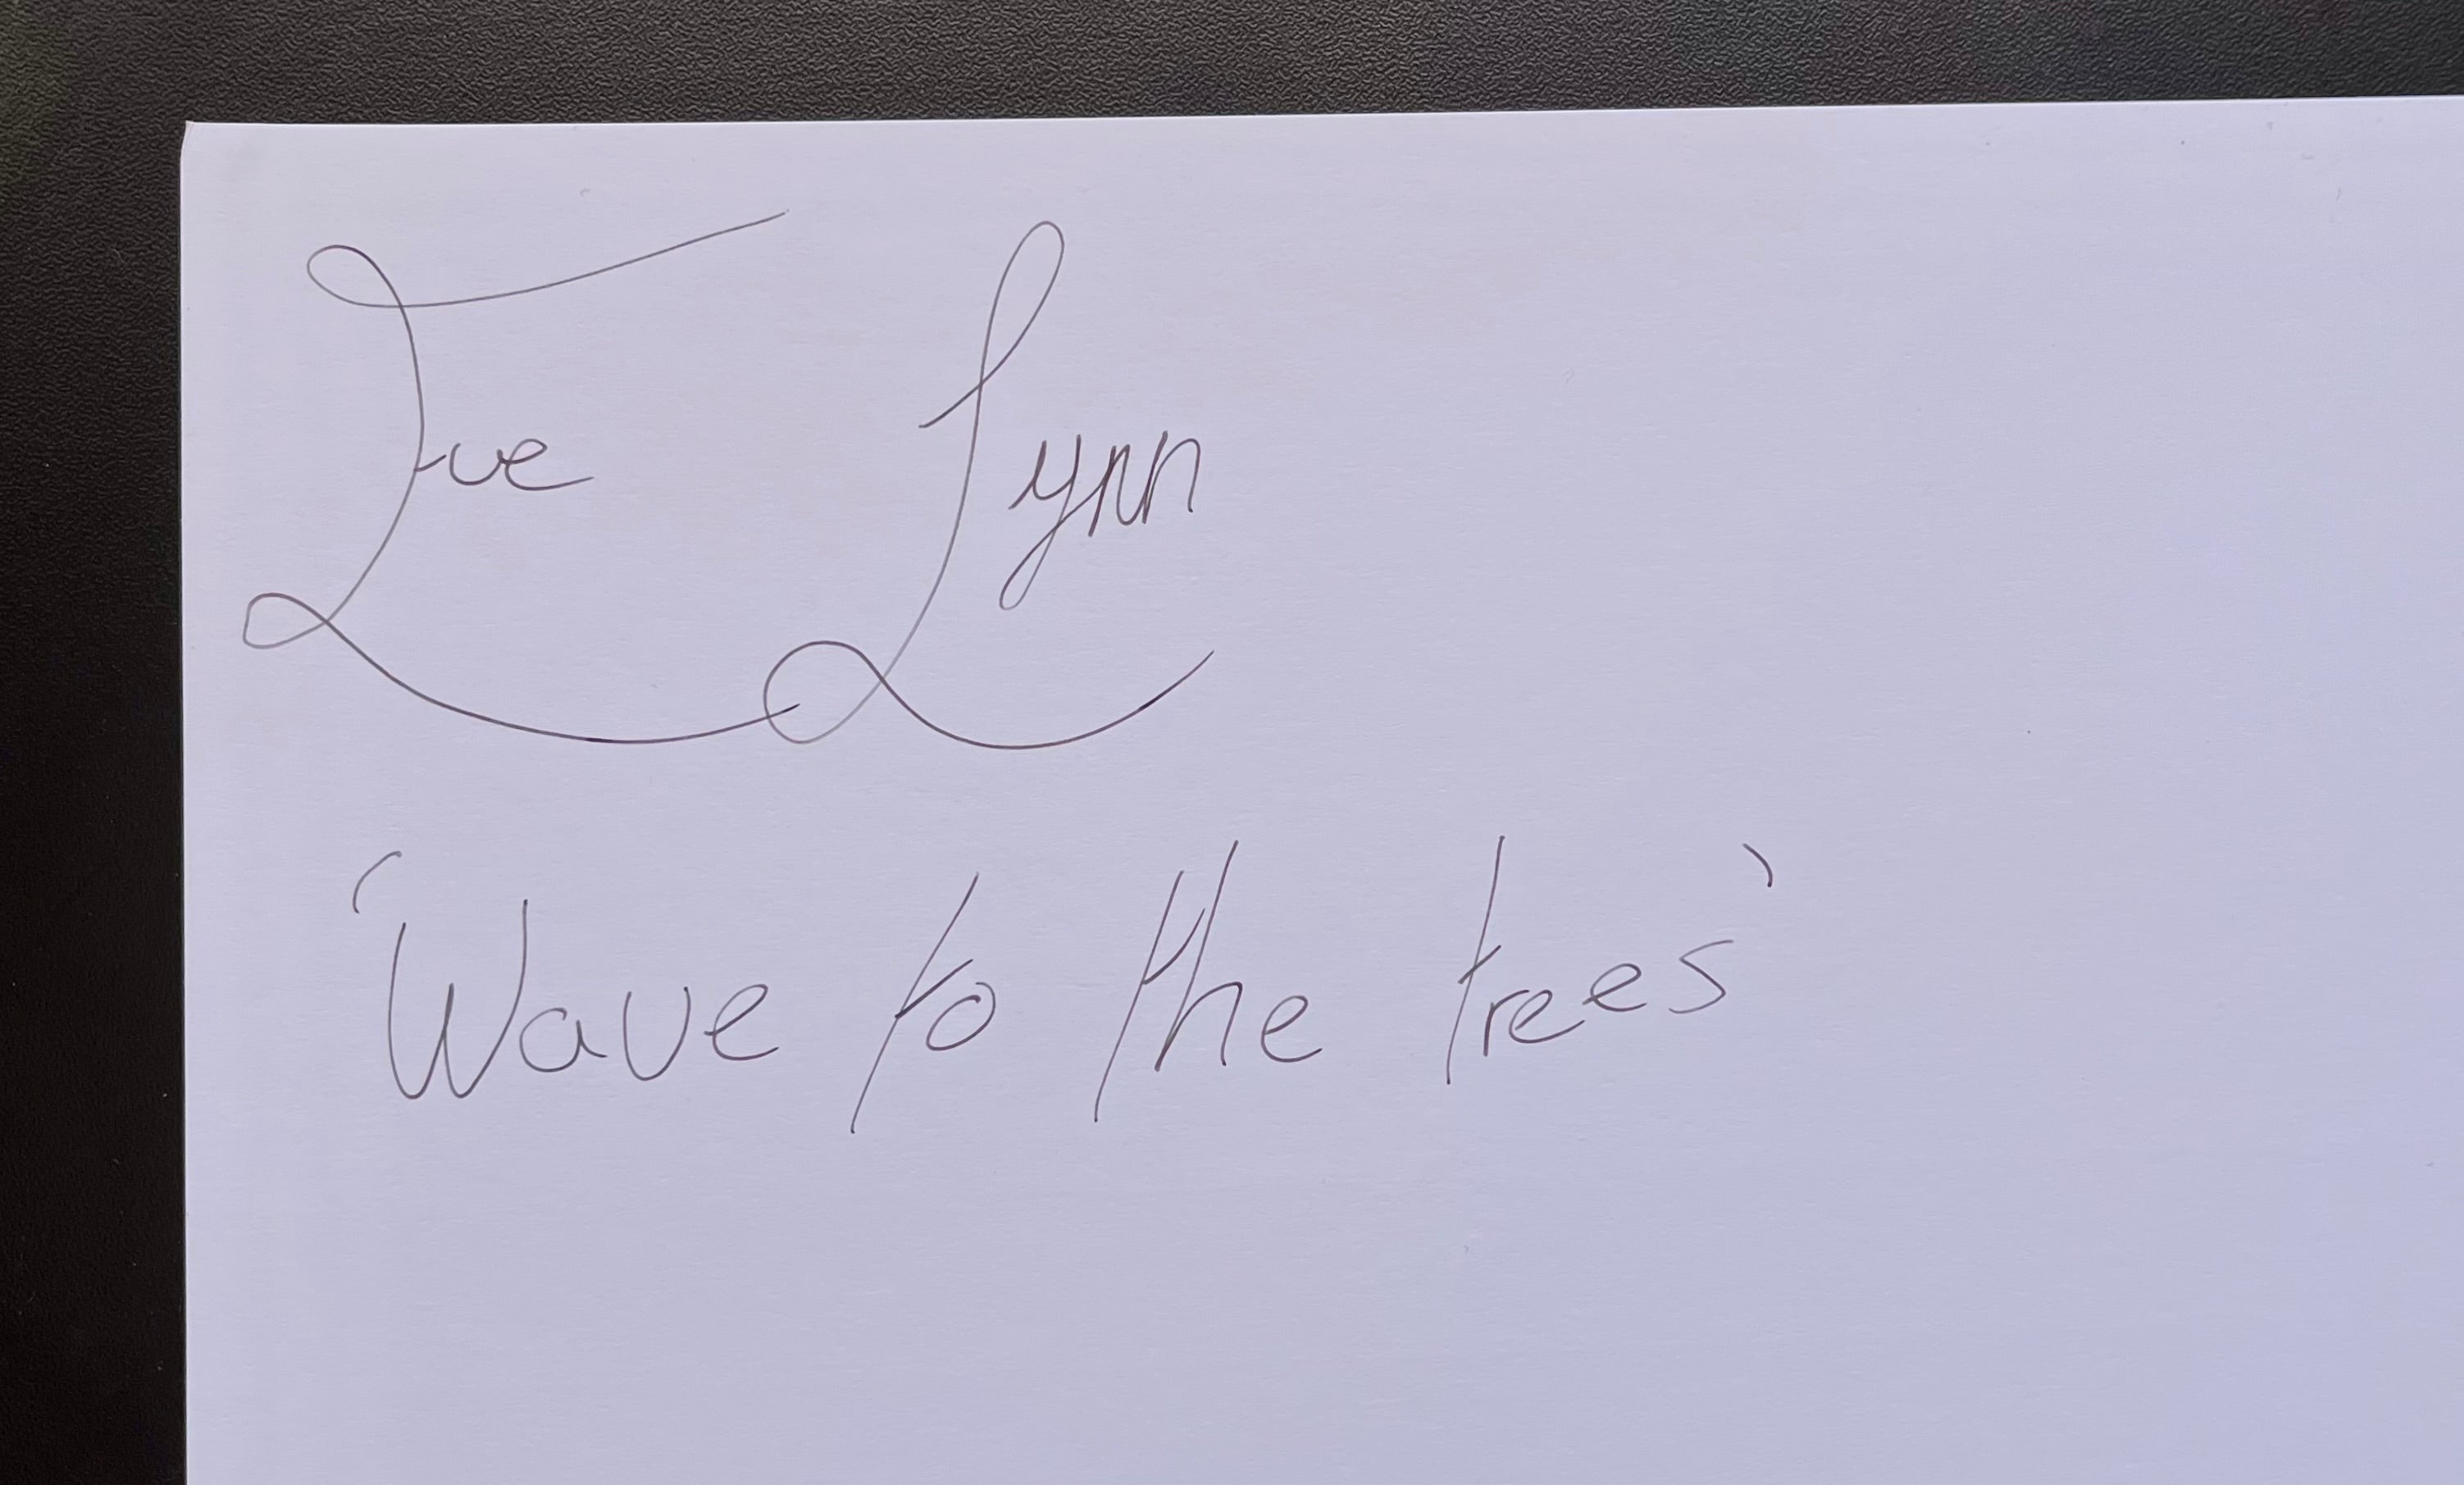 Eve Lynn
'Wave to the trees'